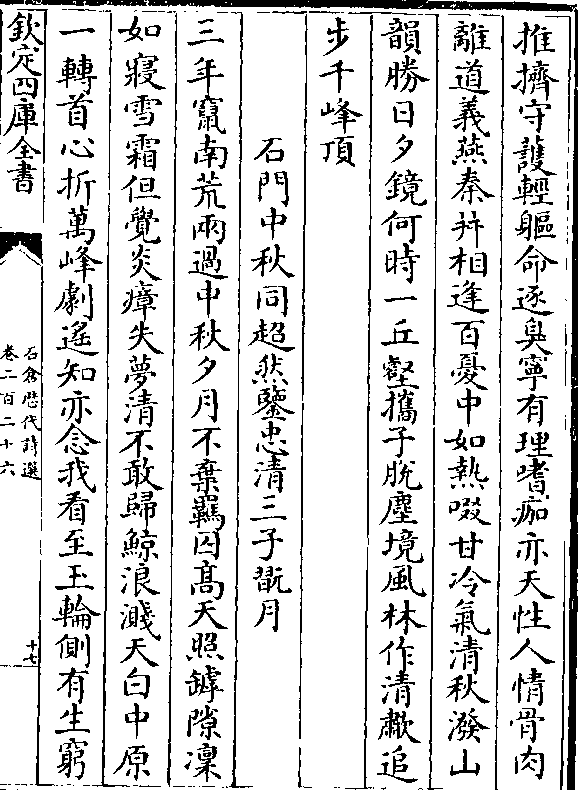 推擠守護輕軀命逐臭寧有理嗜痂亦天性人情骨肉
離道義燕秦并相逢百憂中如熱啜甘冷氣清秋潑山
韻勝日夕鏡何時一丘壑攜子脫塵境風林作清歗追
步千峰頂
石門中秋同超然鑒忠清三子翫月
三年竄南荒兩過中秋夕月不棄羈囚高天照罅隙凜
如寢雪霜但覺炎瘴失夢清不敢歸鯨浪濺天白中原
一轉首心折萬峰劇遙知亦念我看至玉輪側有生窮
欽定四庫全書
石倉歷代詩選
卷二百二十六
十七